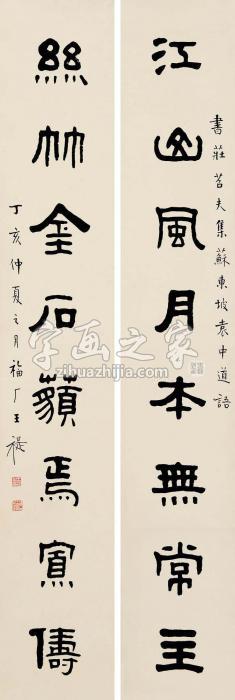 書莊苕夫集蘇東坡袁中道語
江山風月本無常主
絲竹金石藐焉寡儔
丁亥仲夏之月福厂王禔
字画之家
zihuazhijia.com